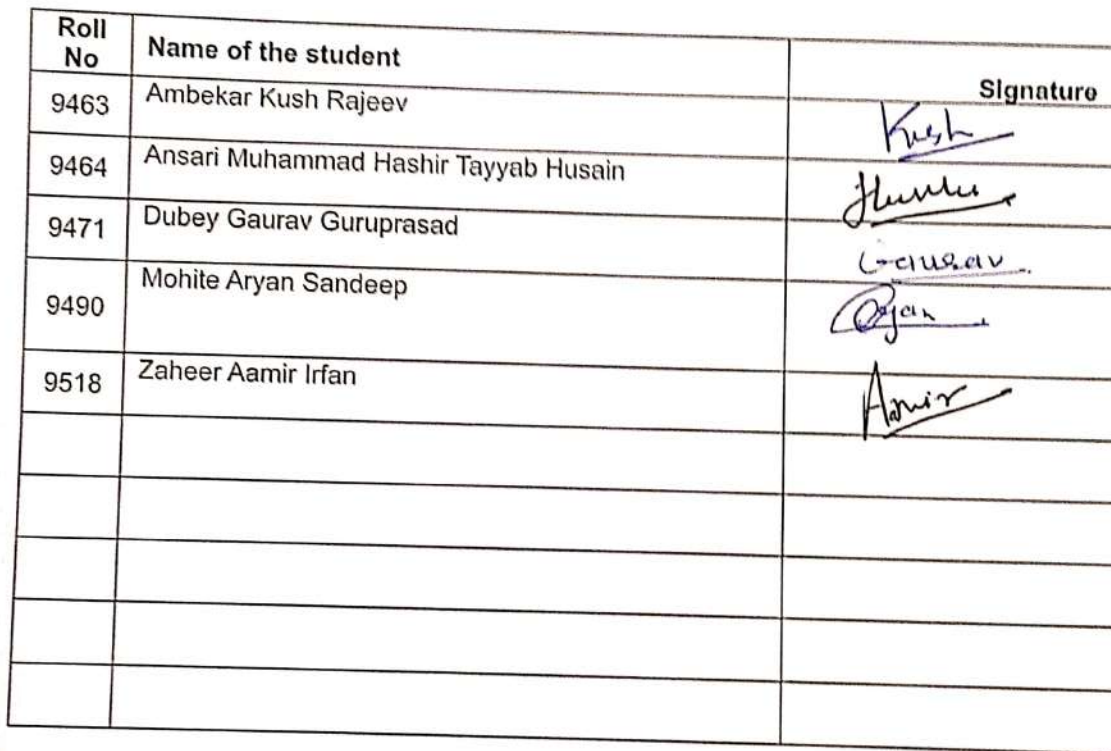 Roll No Name of the student Signature
9463 Ambekar Kush Rajeev Kush
9464 Ansari Muhammad Hashir Tayyab Husain
9471 Dubey Gaurav Guruprasad Gaurav
9490 Mohite Aryan Sandeep
9518 Zaheer Aamir Irfan Aamir